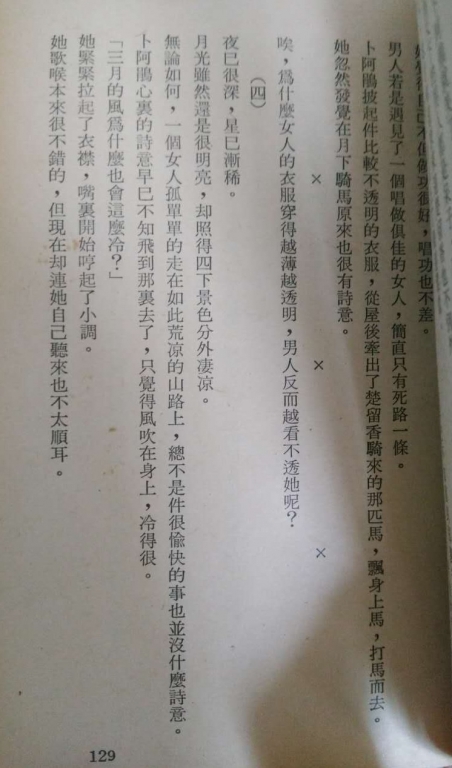 她覺得自己不但做功很好，唱功也不差。
男人若是遇見了一個唱做俱佳的女人，簡直只有死路一條。
卜阿鵑披起件比較不透明的衣服，從屋後牽出了楚留香騎來的那匹馬，飄身上馬，打馬而去。
她忽然發覺在月下騎馬原來也很有詩意。
× × ×
唉，爲什麼女人的衣服穿得越薄越透明，男人反而越看不透她呢？
（四）
夜已很深，星已漸稀。
月光雖然還是很明亮，却照得四下景色分外凄凉。
無論如何，一個女人孤單單的走在如此荒凉的山路上，總不是件很愉快的事也並沒什麼詩意。
卜阿鵑心裏的詩意早已不知飛到那裏去了，只覺得風吹在身上，冷得很。
「三月的風爲什麼也會這麼冷？」
她緊緊拉起了衣襟，嘴裏開始哼起了小調。
她歌喉本來很不錯的，但現在却連她自己聽來也不太順耳。
129